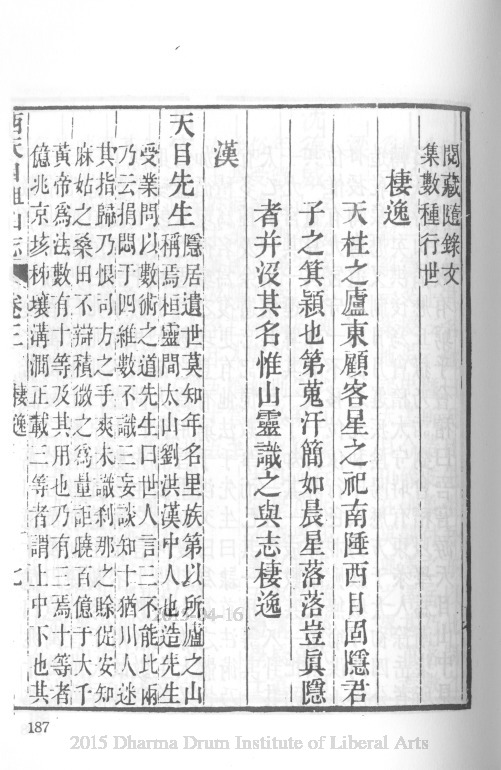 閱藏隨錄文
集數種行世
棲逸
天柱之廬東顧客星之祀南陲西目固隱君
子之箕潁也第蒐汗簡如晨星落落豈眞隱
者并沒其名惟山靈識之與志棲逸
漢
天目先生隱居遺世莫知年名里族第以所廬之山
稱焉桓靈間太山劉洪漢中人也造先生
受業問以數術之道先生曰世人言三不能比兩
乃云捐悶于四維數不識三妄談知十猶川人迷
其指歸乃恨司方之手爽未識刹那之賒促安知
麻姑之桑田不辯積微之爲量詎曉百億于大千
黃帝爲法數有十等及其用也乃有三焉十等者
億兆京垓秭壤溝澗正載三等者謂上中下也其
西天目祖山志 卷三 棲逸 七
187
2015 Dharma Drum Institute of Liberal Arts